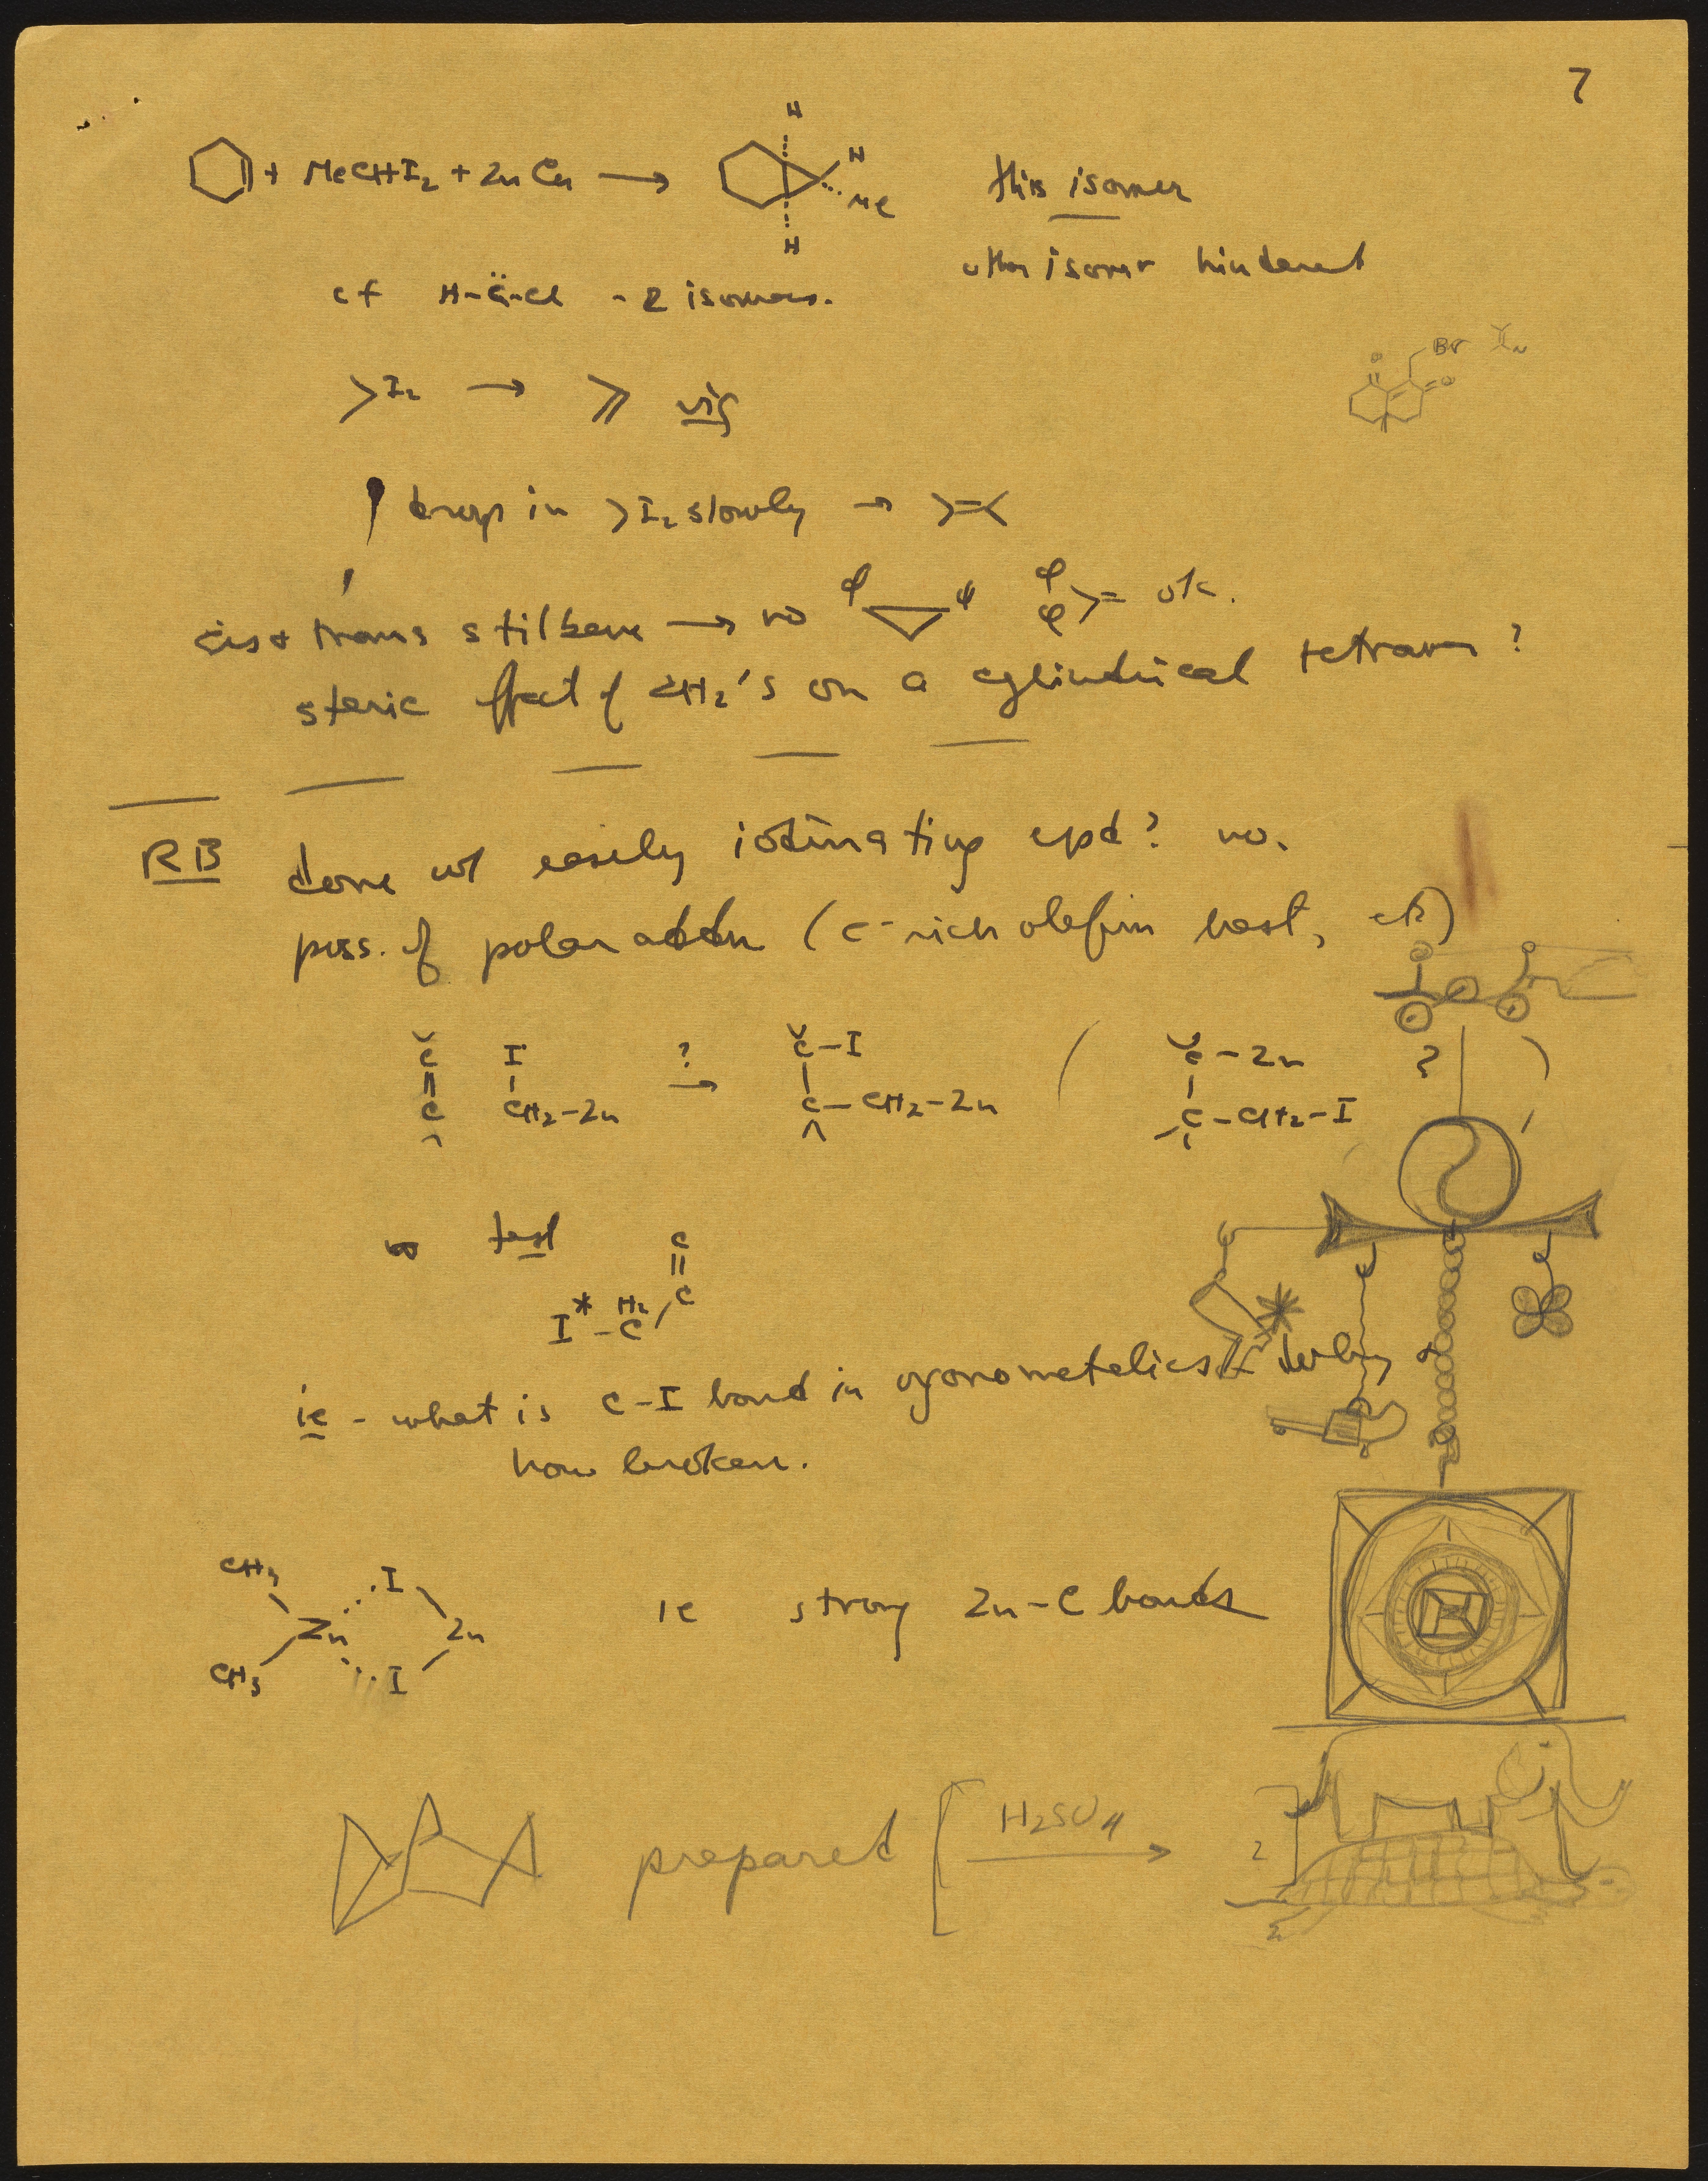 7
+ MeCHI₂ + ZnCu → H H Me H this isomer
other isomer hindered
cf H-C̈-Cl - 2 isomers.
Br
O O
I₂ → vig
drop in >I₂ slowly → >=<
cis + trans stilbene → no φ φ φ φ >= ok.
steric effect of CH₂'s on a cylindrical ?
RB done w/ easily iodinating cpd? no.
poss. of polar addn (e⁻ rich olefin best, etc)
C I ? C-I ( C-Zn ? )
C CH₂-Zn → C-CH₂-Zn C-CH₂-I
test C
I*-C H₂ C
ie - what is C-I bond in organometallics &
how broken.
CH₃ I
Zn Zn ie strong Zn-C bonds
CH₃ I
prepared [ H₂SO₄ →